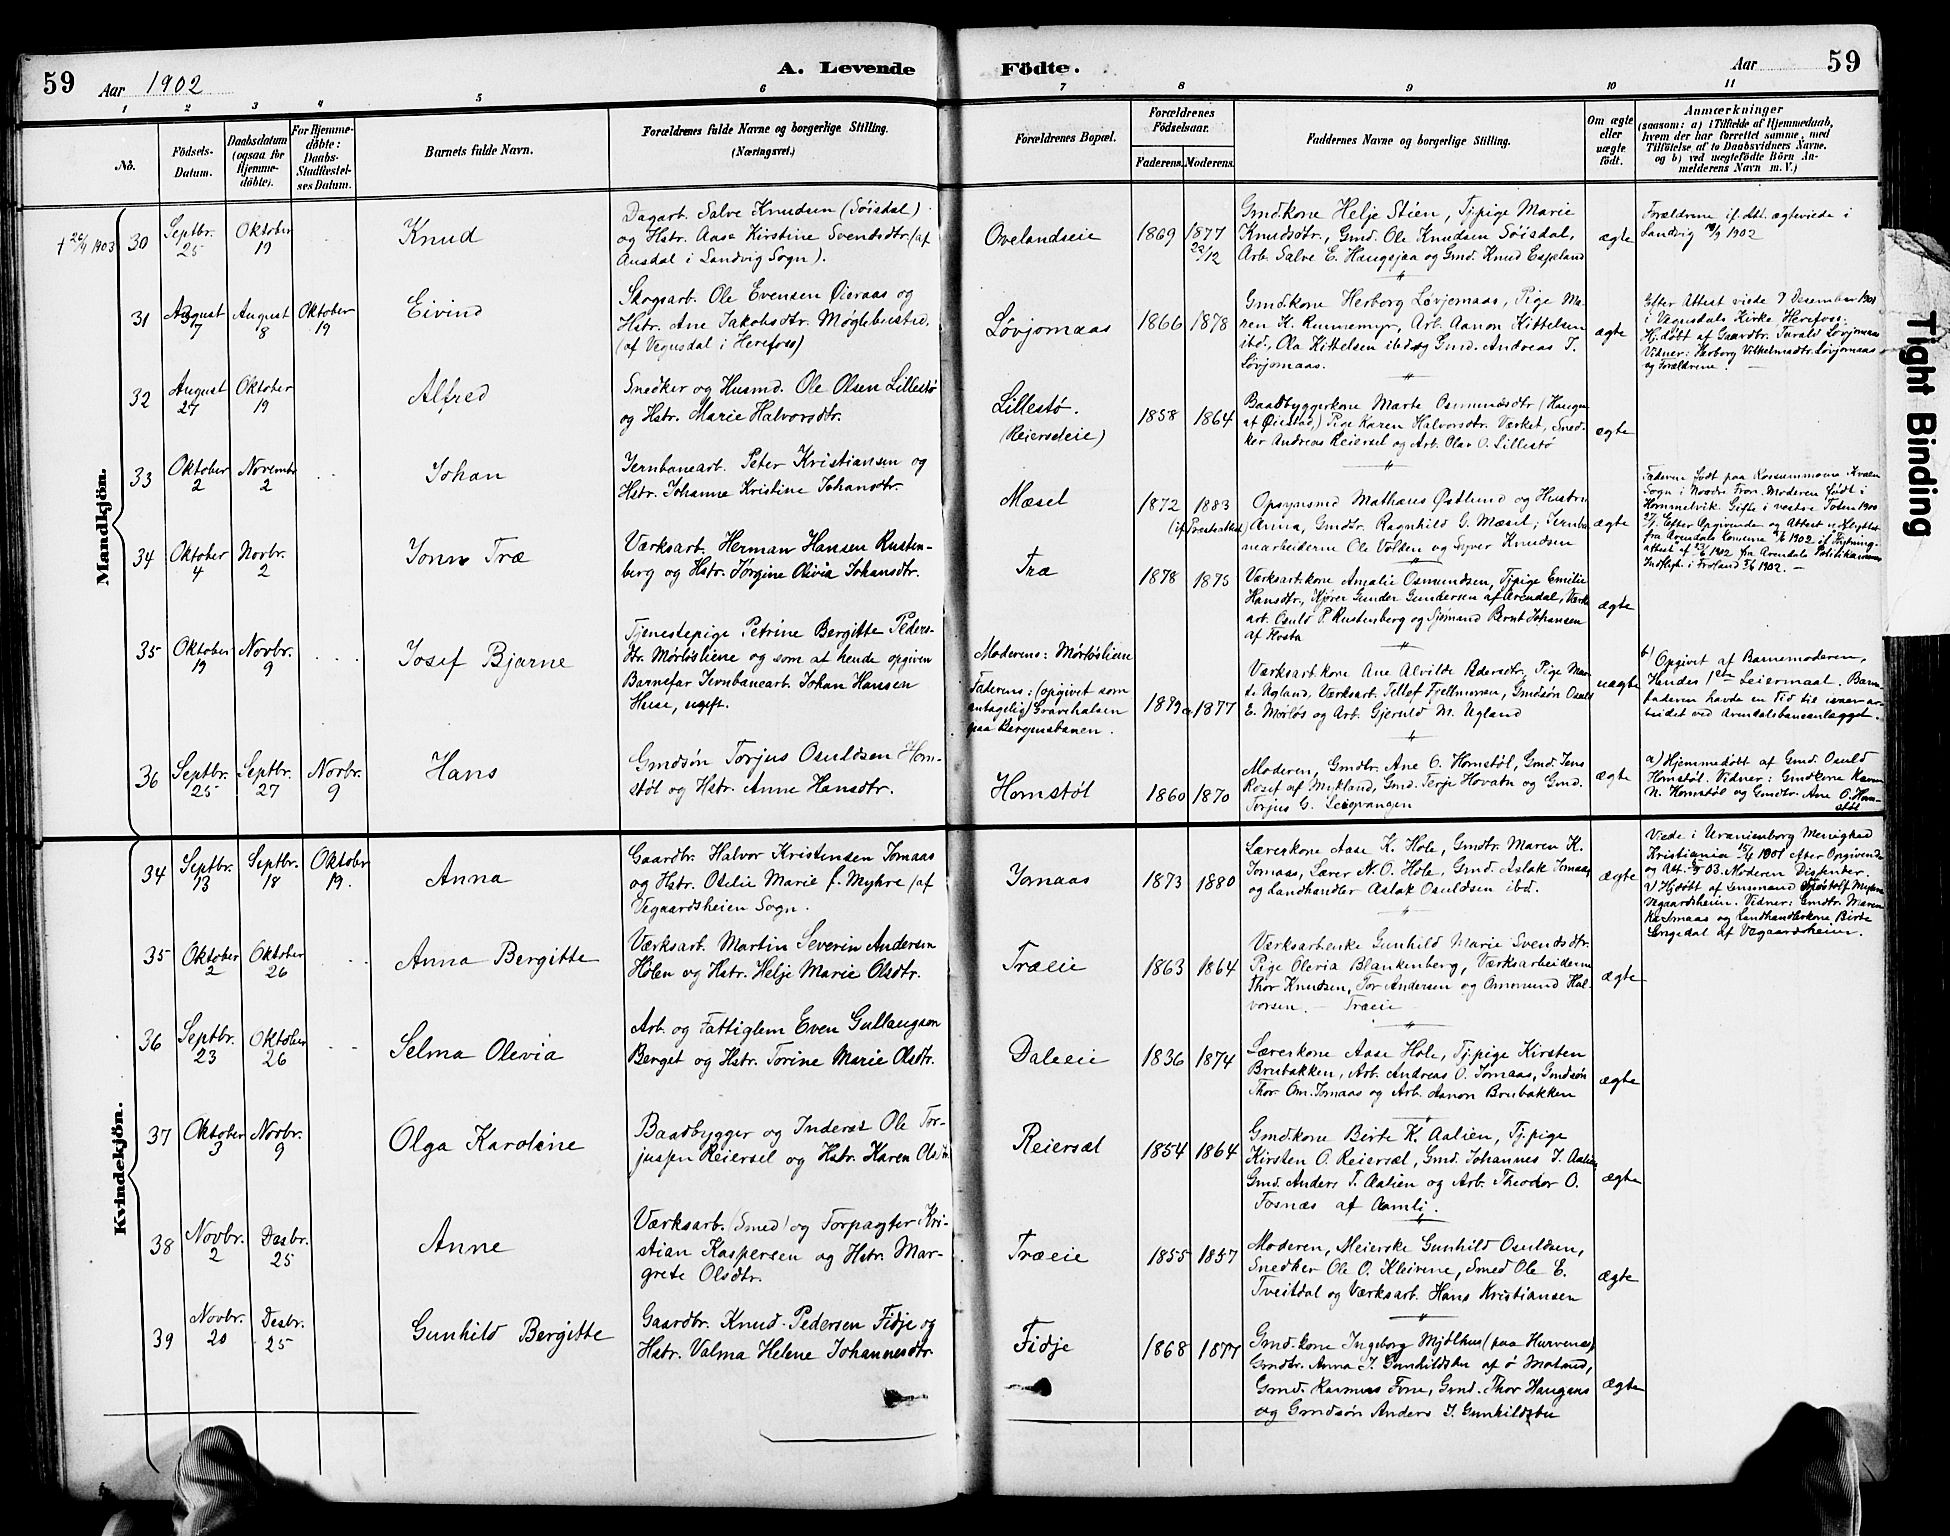 59
Aar 1902
A. Levende Födte.
Aar
59
1 2 3 4 5 6 7 8 9 10 11
No.
Födsels-
Datum.
Daabsdatum
(ogsaa for
Hjemme-
döbte).
For Hjemme-
döbte:
Daabs-
Stadfæstel-
ses Datum.
Barnets fulde Navn.
Forældrenes fulde Navne og borgerlige Stilling.
(Næringsvei.)
Forældrenes Bopæl.
Forældrenes
Födselsaar.
Faderens. Moderens.
Faddernes Navne og borgerlige Stilling.
Om ægte
eller
uægte
födt.
Anmærkninger
(saasom: a) i Tilfælde af Hjemmedaab,
hvem der har forrettet samme, med
Tilföielse af to Daabsvidners Navne.
og b) ved uegtefödte Börn An-
melderens Navn m. V.)
Mandkjön.
† 26/4 1903 30
Septbr. 25
Oktober 19
Knud
Dagarb. Salve Knudsen (Søisdal)
og Hstr. Aase Kirstine Svendsdtr. (af
Ausdal i Landvig Sogn).
Ovelandseie
1869 1877 22/12
Gmd.kone Helje Stien, Tj.pige Marie
Knudsdtr., Gmd. Ole Knudsen Søisdal,
Arb. Salve E. Haugsjaa og Gmd. Knud Espeland
ægte
Forældrene if. Att. ægteviede i
Landvig 1902
31
August 7
August 8
Oktober 19
Eivind
Skogsarb. Ole Evensen Øieraas og
Hstr. Ane Jakobsdtr. Møglebustad.
(af Vegusdal i Herefoss)
Løvjomaas
1866 1878
Gmd.kone Herborg Løvjomaas, Pige Ma-
ren K. Runnemyr, Arb. Aanon Kittelsen
ibd., Ola Kittelsen ibd. og Gmd. Andreas T.
Løvjomaas.
ægte
Efter Attest viede 7 Desember 1901
i Vegusdals Kirke Herefoss.
Hj.døbt af Gaardbr. Tarald Løvjomaas
Vidner: Herborg Vilhelmsdtr. Løvjomaas
og Forældrene.
32
August 27
Oktober 19
Alfred
Snedker og Husmd. Ole Olsen Lillestø
og Hstr. Marie Halvorsdtr.
Lillestø.
(Reierseleie)
1858 1864
Baadbyggerkone Marte Osmundsdtr (Haugen
af Øiestad) Pige Karen Halvorsdtr. Værket, Sned-
ker Andreas Reiersel og Arb. Olav O. Lillestø
ægte
33
Oktober 2
Novembr 2
Johan
Jernbanearb. Peter Kristiansen og
Hstr. Johanne Kristine Johansdtr.
Mæsel
1872 1883
Opsynsmd Mathæus Østlund og Hustru
Anna, Gmdtr. Ragnhild G. Mæsel, Jernba-
nearbeiderne Ole Volden og Syver Knudsen
ægte
Faderen født paa
Sogn i Nordre Fron. Moderen født i
Hommelvik. Gifte i vestre Toten 1900
Efter Opgivende og Attest
fra Arendals 1902 if. flytnings-
attest af 1902 fra Arendals Politikammer
Indflytt. i Froland 5/6 1902.
34
Oktober 4
Novbr. 2
Jonn Træ
Værksarb. Herman Hansen Rusten-
berg og Hstr. Jørgine Olivia Johansdtr.
Træ
1878 1875
Værksarb.kone Amalie Osmundsen, Tj.pige Emilie
Hansdtr., Kjører Gunder Gundersen af Arendal, Værks-
arb. Osuld P. Rustenberg og Sjømand Bernt Johansen
af Hosta
ægte
35
Oktober 19
Novbr. 9
Josef Bjarne
Tjenestepige Petrine Bergitte Peders-
dtr. Mørløsliene og som af hende opgiven
Barnefar Jernbanearb. Johan Hansen
Huse, ugift.
Moderens: Mørløsliene
Faderens: (opgivet som
antagelig) Gravehalsen
paa Bergensbanen.
1879 1877
Værksarb.kone Ane Alvilde Pedersdtr, Pige Mar-
te Ugland, Værksarb. Tellef Fjellmoren, Gmdsøn Osuld
E. Mørløs og Arb. Gjeruld M. Ugland
uægte
b) Opgivet af Barnemoderen,
Hendes 1ste Leiermaal. Barne-
faderen havde en Tid til ar-
beidet ved Arendalsbaneanlægget.
36
Septbr. 25
Septbr. 27
Novbr. 9
Hans
Gmdsøn Torjus Osuldsen Horn-
støl og Hstr. Anne Hansdtr.
Hornstøl
1860 1870
Moderen, Gmdtr. Ane O. Hornstøl, Gmd. Jens
Rosef af Mykland, Gmd. Terje Hovatn og Gmd.
Torjus G. Leigvangen
ægte
a) Hjemmedøbt af Gmd. Osuld
Hornstøl. Vidner: Gmdkone Karen
N. Hornstøl og Gmdtr. Ane O. Horn-
støl
Kvindekjön.
34
Septbr. 13
Septbr. 18
Oktober 19.
Anna
Gaardbr. Halvor Kristensen Jomaas
og Hstr. Otelie Marie f. Myhre (af
Vegaardsheien Sogn.
Jomaas
1873 1880
Lærerkone Aase K. Hole, Gmdtr. Maren K.
Jomaas, Lærer N. O. Hole, Gmd. Aslak Jomaas
og Landhandler Aslak Osuldsen ibd.
ægte
Viede i Uranienborg Menighed
Kristiania 15/4 1901 efter Opgivende
og 03. Moderen Dissenter.
Hj.døbt af Lensmand Myhre
Vegaardsheien. Vidner: Gmdtr. Maren
K. Jomaas og Landhandlerkone Birte
Songedal af Vegaardsheien.
35
Oktober 2
Oktober 26
Anna Bergitte
Værksarb. Martin Severin Andersen
Hølen og Hstr. Helje Marie Olsdtr.
Træeie
1863 1864
Værksarb.enke Gunhild Marie Svendsdtr.
Pige Oleria Blankenberg, Værksarbeiderne
Thor Knudsen, Tor Andersen og Ommund Hal-
vorsen. – Træeie
ægte
36
Septbr. 23
Oktober 26
Selma Olevia
Arb. og Fattiglem Even Gullaugson
Berget og Hstr. Torine Marie Olsdtr.
Daleeie
1836 1874
Lærerkone Aase Hole, Tj.pige Kirsten
Brubakken, Arb. Andreas O. Jomaas, Gmdsøn
Thor Om. Jomaas og Arb. Aanon Brubakken
ægte
37
Oktober 3
Novbr. 9
Olga Karoline
Baadbygger og Inderst Ole Tor-
jusen Reiersel og Hstr. Karen Olsdtr
Reiersæl
1854 1864
Gmd.kone Birte K. Aalien, Tj.pige
Kirsten O. Reiersæl, Gmd. Johannes J. Aalien
Gmd. Anders T. Aalien og Arb. Theodor O.
Fosnæs af Aamli.
ægte
38
Novbr. 2
Desbr. 25
Anne
Værksarb. (Smed) og Forpagter Kri-
stian Kaspersen og Hstr. Mar-
grete Olsdtr.
Træeie
1855 1857
Moderen, Meierske Gunhild Osuldsen,
Snedker Ole O. Kleivene, Smed Ole E.
Tveitdal og Værksarb. Hans Kristiansen
ægte
39
Novbr. 20
Desbr. 25
Gunhild Bergitte
Gaardbr. Knud Pedersen Fidje og
Hstr. Valma Helene Johannesdtr
Fidje
1868 1877
Gmd.kone Ingeborg Mjølhus (paa Hurvenes)
Gmdtr. Anna J. Gunhildsbu af ø. Moland,
Gmd. Rasmus Fone, Gmd. Thor Haugaas
og Gmdsøn Anders J. Gunhildsbu
ægte
Tight Binding